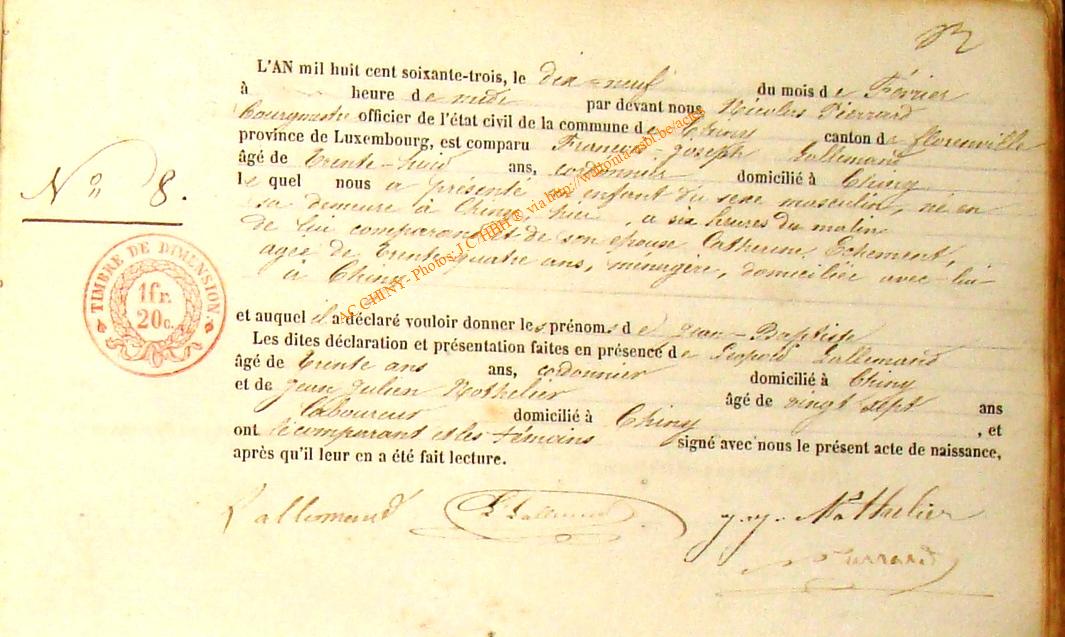 L'AN mil huit cent soixante-trois, le dix-neuf du mois de Février
à heure de midi par devant nous Nicolas Pierrard
Bourgmestre officier de l'état civil de la commune de Chiny canton de florenville
province de Luxembourg, est comparu François-Joseph Lallemand
âgé de Trente-huit ans, cordonnier domicilié à Chiny
le quel nous a présenté un enfant du sexe masculin, né en
sa demeure à Chiny hier, a six heures du matin
de lui comparant et de son épouse Catherine Echement,
agée de Trente quatre ans, ménagère, domiciliée avec lui
à Chiny
N° 8.
TIMBRE DE DIMENSION.
1fr.
20c.
et auquel il a déclaré vouloir donner les prénoms de Jean-Baptiste
Les dites déclaration et présentation faites en présence de Léopold Lallemand
âgé de Trente ans ans, cordonnier domicilié à Chiny
et de Jean Julien Nothelier âgé de vingt sept ans
Laboureur domicilié à Chiny , et
ont le comparant et les témoins signé avec nous le présent acte de naissance,
après qu'il leur en a été fait lecture.
Lallemand L Lallemand J.J. Nothelier
Pierrard
AC CHINY - Photos: J.C/HBH © via http://wallonia-asbl.be/actes/